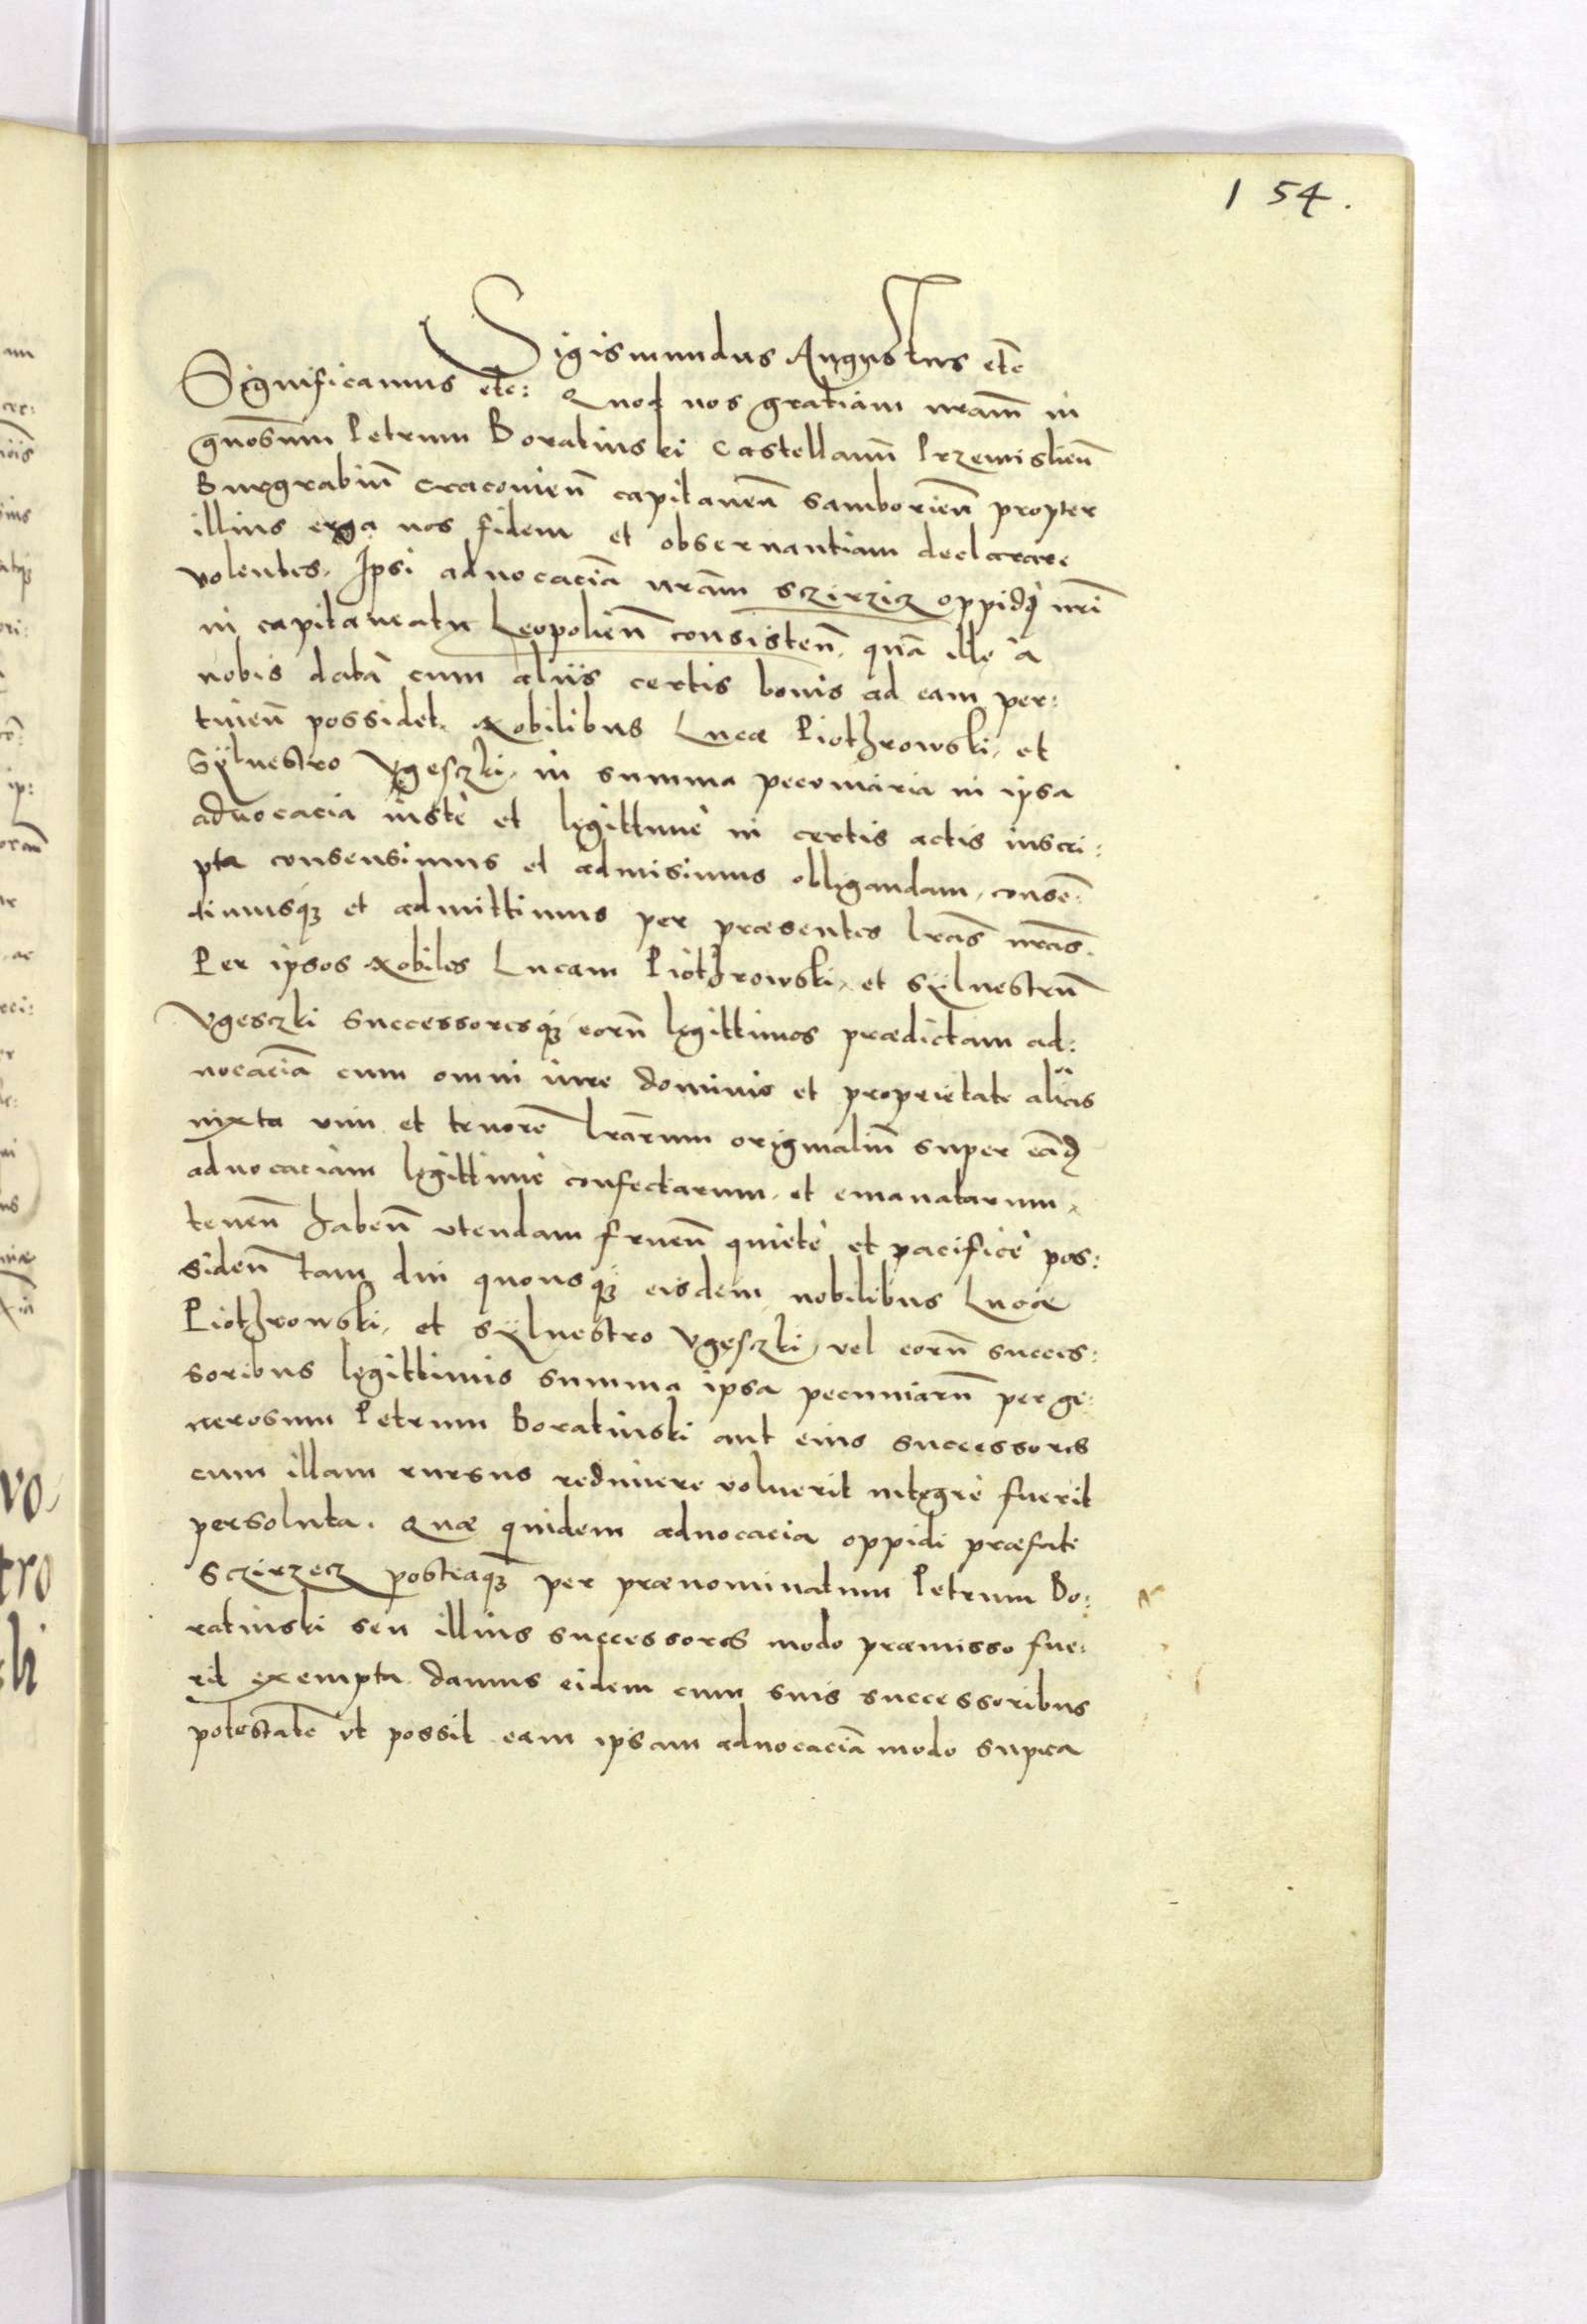 154.
Sigismundus Augustus etc̄
Significamus etc: Quod nos gratiam nrām in
gnōsum Petrum Boratinski Castellanū Przemislieñ
Burgrabiū Cracovieñ capitaneū Samborieñ propter
illius erga nos fidem et observantiam declarare
volentes, Ipsi advocaciā nrām Sczirzicz oppidi nrī
in capitaneatu Leopolieñ consisteñ, quā ille à
nobis datā cum aliis certis bonis ad eam per:
tineñ possidet, Nobilibus Lucae Piothrowski, et
Sÿlvestro Vgesczki, in summa pecuniaria in ipsa
advocacia iustè et legittimè in certis actis inscri:
pta consensimus et admisimus obligandam, consē:
timusq₃ et admittimus per praesentes lrās nrās.
Per ipsos Nobiles Lucam Piothrowski, et Sÿlvestrū
Vgesczki successoresq₃ eorū legittimos praedictam ad:
vocaciā cum omni iure dominio et proprietate alias
iuxta vim et tenorē lrārum originaliū super eād̄
advocaciam legittimè confectarum, et emanatarum,
teneñ habeñ vtendam frueñ quietè et pacificè pos:
sideñ tam diu quousq₃ eisdem nobilibus Lucae
Piothrowski, et Sÿlvestro Vgesczki, vel eorū succes:
soribus legittimis summa ipsa pecuniarū per ge:
nerosum Petrum Boratinski aut eius successores
cum illam rursus redimere voluerit integrè fuerit
persoluta. Quae quidem advocacia oppidi praefati
Sczirzecz posteaq₃ per praenominatum Petrum Bo:
ratinski seu illius successores modo praemisso fue:
rit exempta damus eidem cum suis successoribus
potestatē vt possit eam ipsam advocaciā modo supra